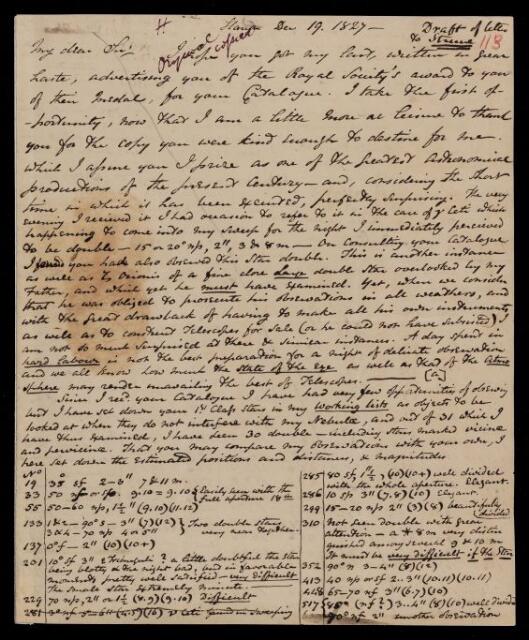 Slough Dec 19. 1827 —
Draft of letter
to Struve
113
Original copied
My dear Sir
I hope you got my last, written in great
haste, advertising you of the Royal Society's award to you
of their Medal, for your Catalogue. I take the first op-
-portunity, now that I am a little more at leisure to thank
you for the copy you were kind enough to destine for me.
which I assure you I prize as one of the greatest astronomical
productions of the present century — and, considering the short
time in which it has been executed, perfectly surprising. The very
evening I received it I had occasion to refer to it in the case of γ Ceti which
happening to come into my Sweep for the night I immediately perceived
to be double — 15 or 20° n/p, 2", 3 & 8 m — On consulting your Catalogue
I found you had also observed this Star double. This is another instance
as well as ζ Orionis of a fine close large double Star overlooked by my
Father, and which yet he must have examined. Yet, when we consider
that he was obliged to prosecute his observations in all weathers, and
with the great drawback of having to make all his own instruments,
as well as to construct Telescopes for Sale (or he could not have subsisted) I
am not so much surprised at these & similar instances. A day spent in
hard labour is not the best preparation for a night of delicate observation
and we all know how much the state of the Eye as well as that of the Atmo
sphere may render unavailing the best of Telescopes. — [a]
Since I recd. your Catalogue I have had very few opportunities of observing
but I have set down your 1st Class stars in my working lists as objects to be
looked at when they do not interfere with my Nebulae, and out of 31 which I
have thus examined, I have seen 30 double — including stars marked vicinae
and pervicinae. That you may compare my observations with your own, I
here set down the estimated positions and distances, & magnitudes
No °
19 35 sf 2-3" 7 & 11 m.
33 50 nf or sp. 9.10 = 9.10 Easily seen with the
full aperture 18 in
55 50-60 n/p, 1½" (9.10)(11.12)
133 1&2 - 90° s - 3" (7)(12) Two double stars
3&4 - 70 n/p 4 or 5" very near together.
137 0° f - 2" (10)(10+)
201 10° sf 3" Trianguli? a little doubtful the star
being blotty & the night bad, and in favorable
moments pretty well satisfied — very difficult
the small star extremely minute.
229 70 n/p, 2" or 1½ (8.9)(9.10) Difficult
285 80 sf, 1½" (10)(10+) well divided
with the whole aperture. Elegant.
286 10 s/p 3" (7.8)(10) Elegant.
299 15-20 n/p 2" (3)(8) beautifully
divided
310 Not seen double with great
attention — a * 8 m very distin
guished among several 9 & 10 m
It must be very difficult if the Star
352 90° n 3-4" (8)(12)
413 40 n/p or sf 2.3" (10.11)(10.11)
448 65-70 nf 3" (6.7)(10)
517 45° (nf?) 3-4" (8)(10) well divided
90° nf 2" another observation